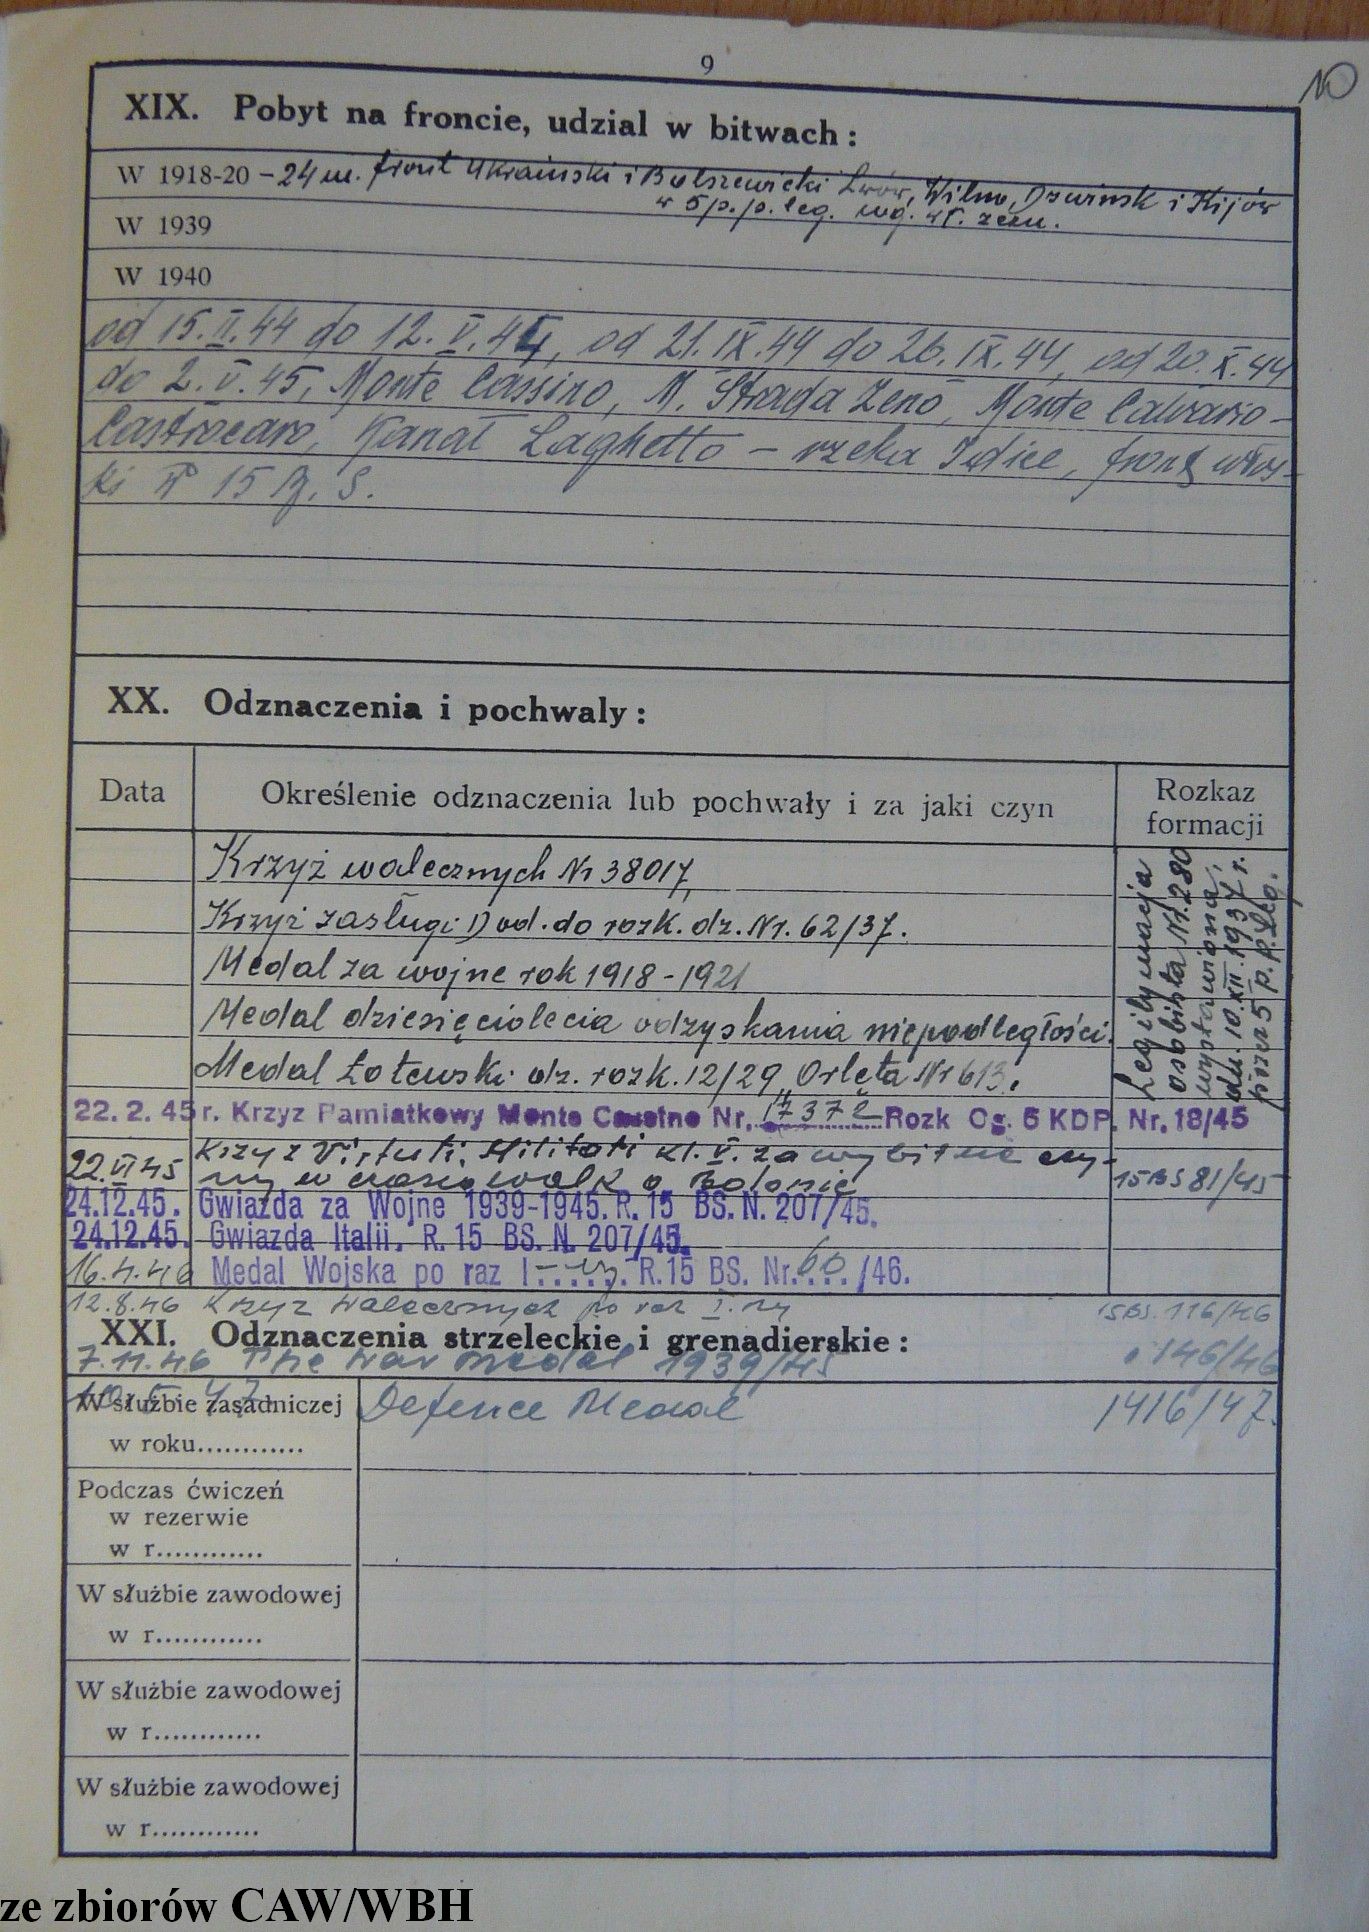 9
10
XIX. Pobyt na froncie, udzial w bitwach:
W 1918-20 – 24 m. front Ukraiński i Bolszewicki Lwów, Wilno, Dzwińsk i Kijów
w 5 p.p. leg. wg. wł. zezn.
W 1939
W 1940
od 15.II.44 do 12.V.44, od 21.IX.44 do 26.IX.44, od 20.X.44
do 2.V.45, Monte Cassino, M. Strada Zeno, Monte Calvario-
Castrocaro, Kanał Laghetto – rzeka Idice, front włos-
ki w 15 B.S.
XX. Odznaczenia i pochwaly:
Data
Określenie odznaczenia lub pochwały i za jaki czyn
Rozkaz
formacji
Krzyż walecznych Nr 38017,
Krzyż zasługi 1) od. do rozk. dz. Nr. 62/37.
Medal za wojnę rok 1918-1921
Medal dziesięciolecia odzyskania niepodległości.
Medal Łotewski dz. rozk. 12/29, Orlęta Nr 613.
Legitymacja
osobista Nr. 280
wystawiona,
dn. 10.XII.1937 r.
przez 5 p.p. Leg.
22. 2. 45 r. Krzyz Pamiatkowy Monte Cassino Nr. 17372 Rozk Og. 5 KDP. Nr. 18/45
22.VI 45 Krzyż Virtuti Militari kl. V. za wybitne czy-
ny w czasie walk o Bolonię 15 BS 81/45
24.12.45. Gwiazda za Wojne 1939-1945. R. 15 BS. N. 207/45.
24.12.45. Gwiazda Italii. R. 15 BS. N. 207/45.
16.4.46 Medal Wojska po raz I-szy R.15 BS. Nr. 60 /46.
12.8.46 Krzyż Walecznych po raz I-szy 15 BS. 116/46
XXI. Odznaczenia strzeleckie i grenadierskie:
7.11.46 The War Medal 1939/45 146/46
W służbie zasadniczej
Defence Medal 1416/47.
w roku............
Podczas ćwiczeń
w rezerwie
w r............
W służbie zawodowej
w r............
W służbie zawodowej
w r............
W służbie zawodowej
w r............
ze zbiorów CAW/WBH